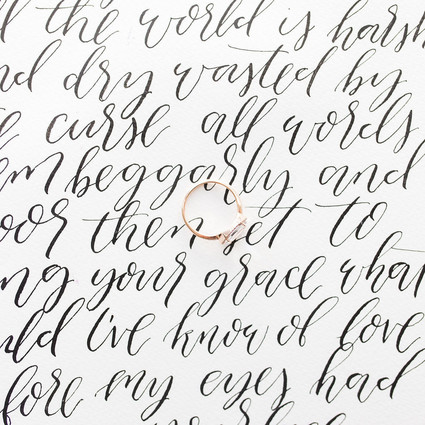 the world is harsh
nd dry wasted by
curse all words
em beggarly and
oor then set to
ng your grace what
uld I've know of love
fore my eyes had